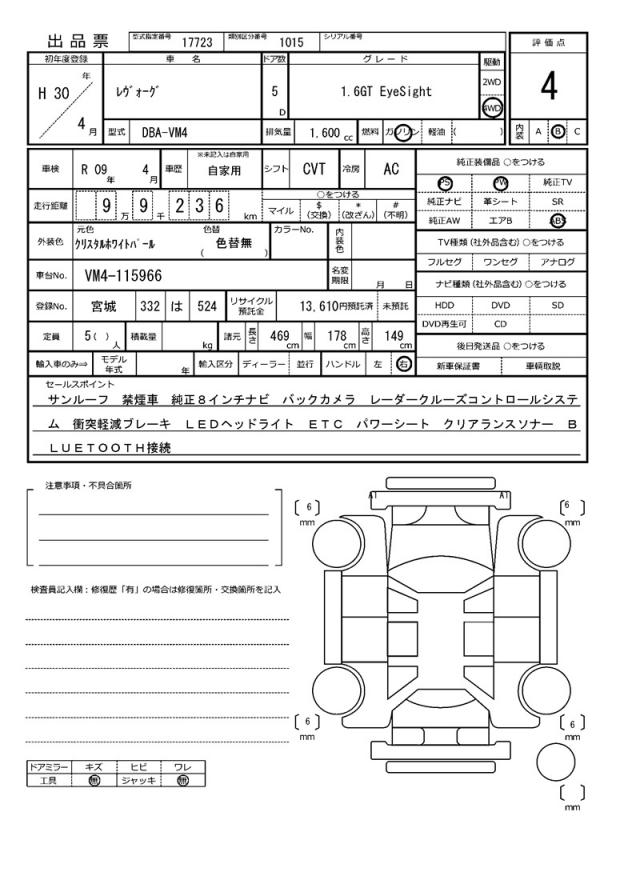 出品票 型式指定番号 17723 類別区分番号 1015 シリアル番号
初年度登録 車名 ドア数 グレード 駆動 評価点
H 30 年 4 月 ﾚｳﾞｫｰｸﾞ 5 D 1.6GT EyeSight 2WD 4WD 4
型式 DBA-VM4 排気量 1.600 cc 燃料 ガソリン 軽油 ( ) 内装 A B C
車検 R 09 年 4 月 車歴 ※未記入は自家用 自家用 シフト CVT 冷房 AC 純正装備品 ○をつける
PS PW 純正TV
走行距離 9 万 9 千 2 3 6 km ○をつける マイル $ (交換) * (改ざん) # (不明) 純正ナビ 革シート SR
純正AW エアB ABS
外装色 元色 ｸﾘｽﾀﾙﾎﾜｲﾄﾊﾟｰﾙ 色替 色替無 ( ) カラーNo. 内装色 TV種類 (社外品含む) ○をつける
フルセグ ワンセグ アナログ
車台No. VM4-115966 名変期限 月 日 ナビ種類 (社外品含む) ○をつける
登録No. 宮城 332 は 524 リサイクル預託金 13,610円預託済 未預託 HDD DVD SD
DVD再生可 CD
定員 5 ( ) 人 積載量 kg 諸元 長さ 469 cm 幅 178 cm 高さ 149 cm 後日発送品 ○をつける
輸入車のみ⇒ モデル年式 年 輸入区分 ディーラー 並行 ハンドル 左 右 新車保証書 車輌取説
セールスポイント
サンルーフ 禁煙車 純正８インチナビ バックカメラ レーダークルーズコントロールシステ
ム 衝突軽減ブレーキ ＬＥＤヘッドライト ＥＴＣ パワーシート クリアランスソナー Ｂ
ＬＵＥＴＯＯＴＨ接続
注意事項・不具合箇所
A1 A1
6 mm 6 mm
検査員記入欄：修復歴「有」の場合は修復箇所・交換箇所を記入
6 mm 6 mm
mm
ドアミラー キズ ヒビ ワレ
工具 無 ジャッキ 無